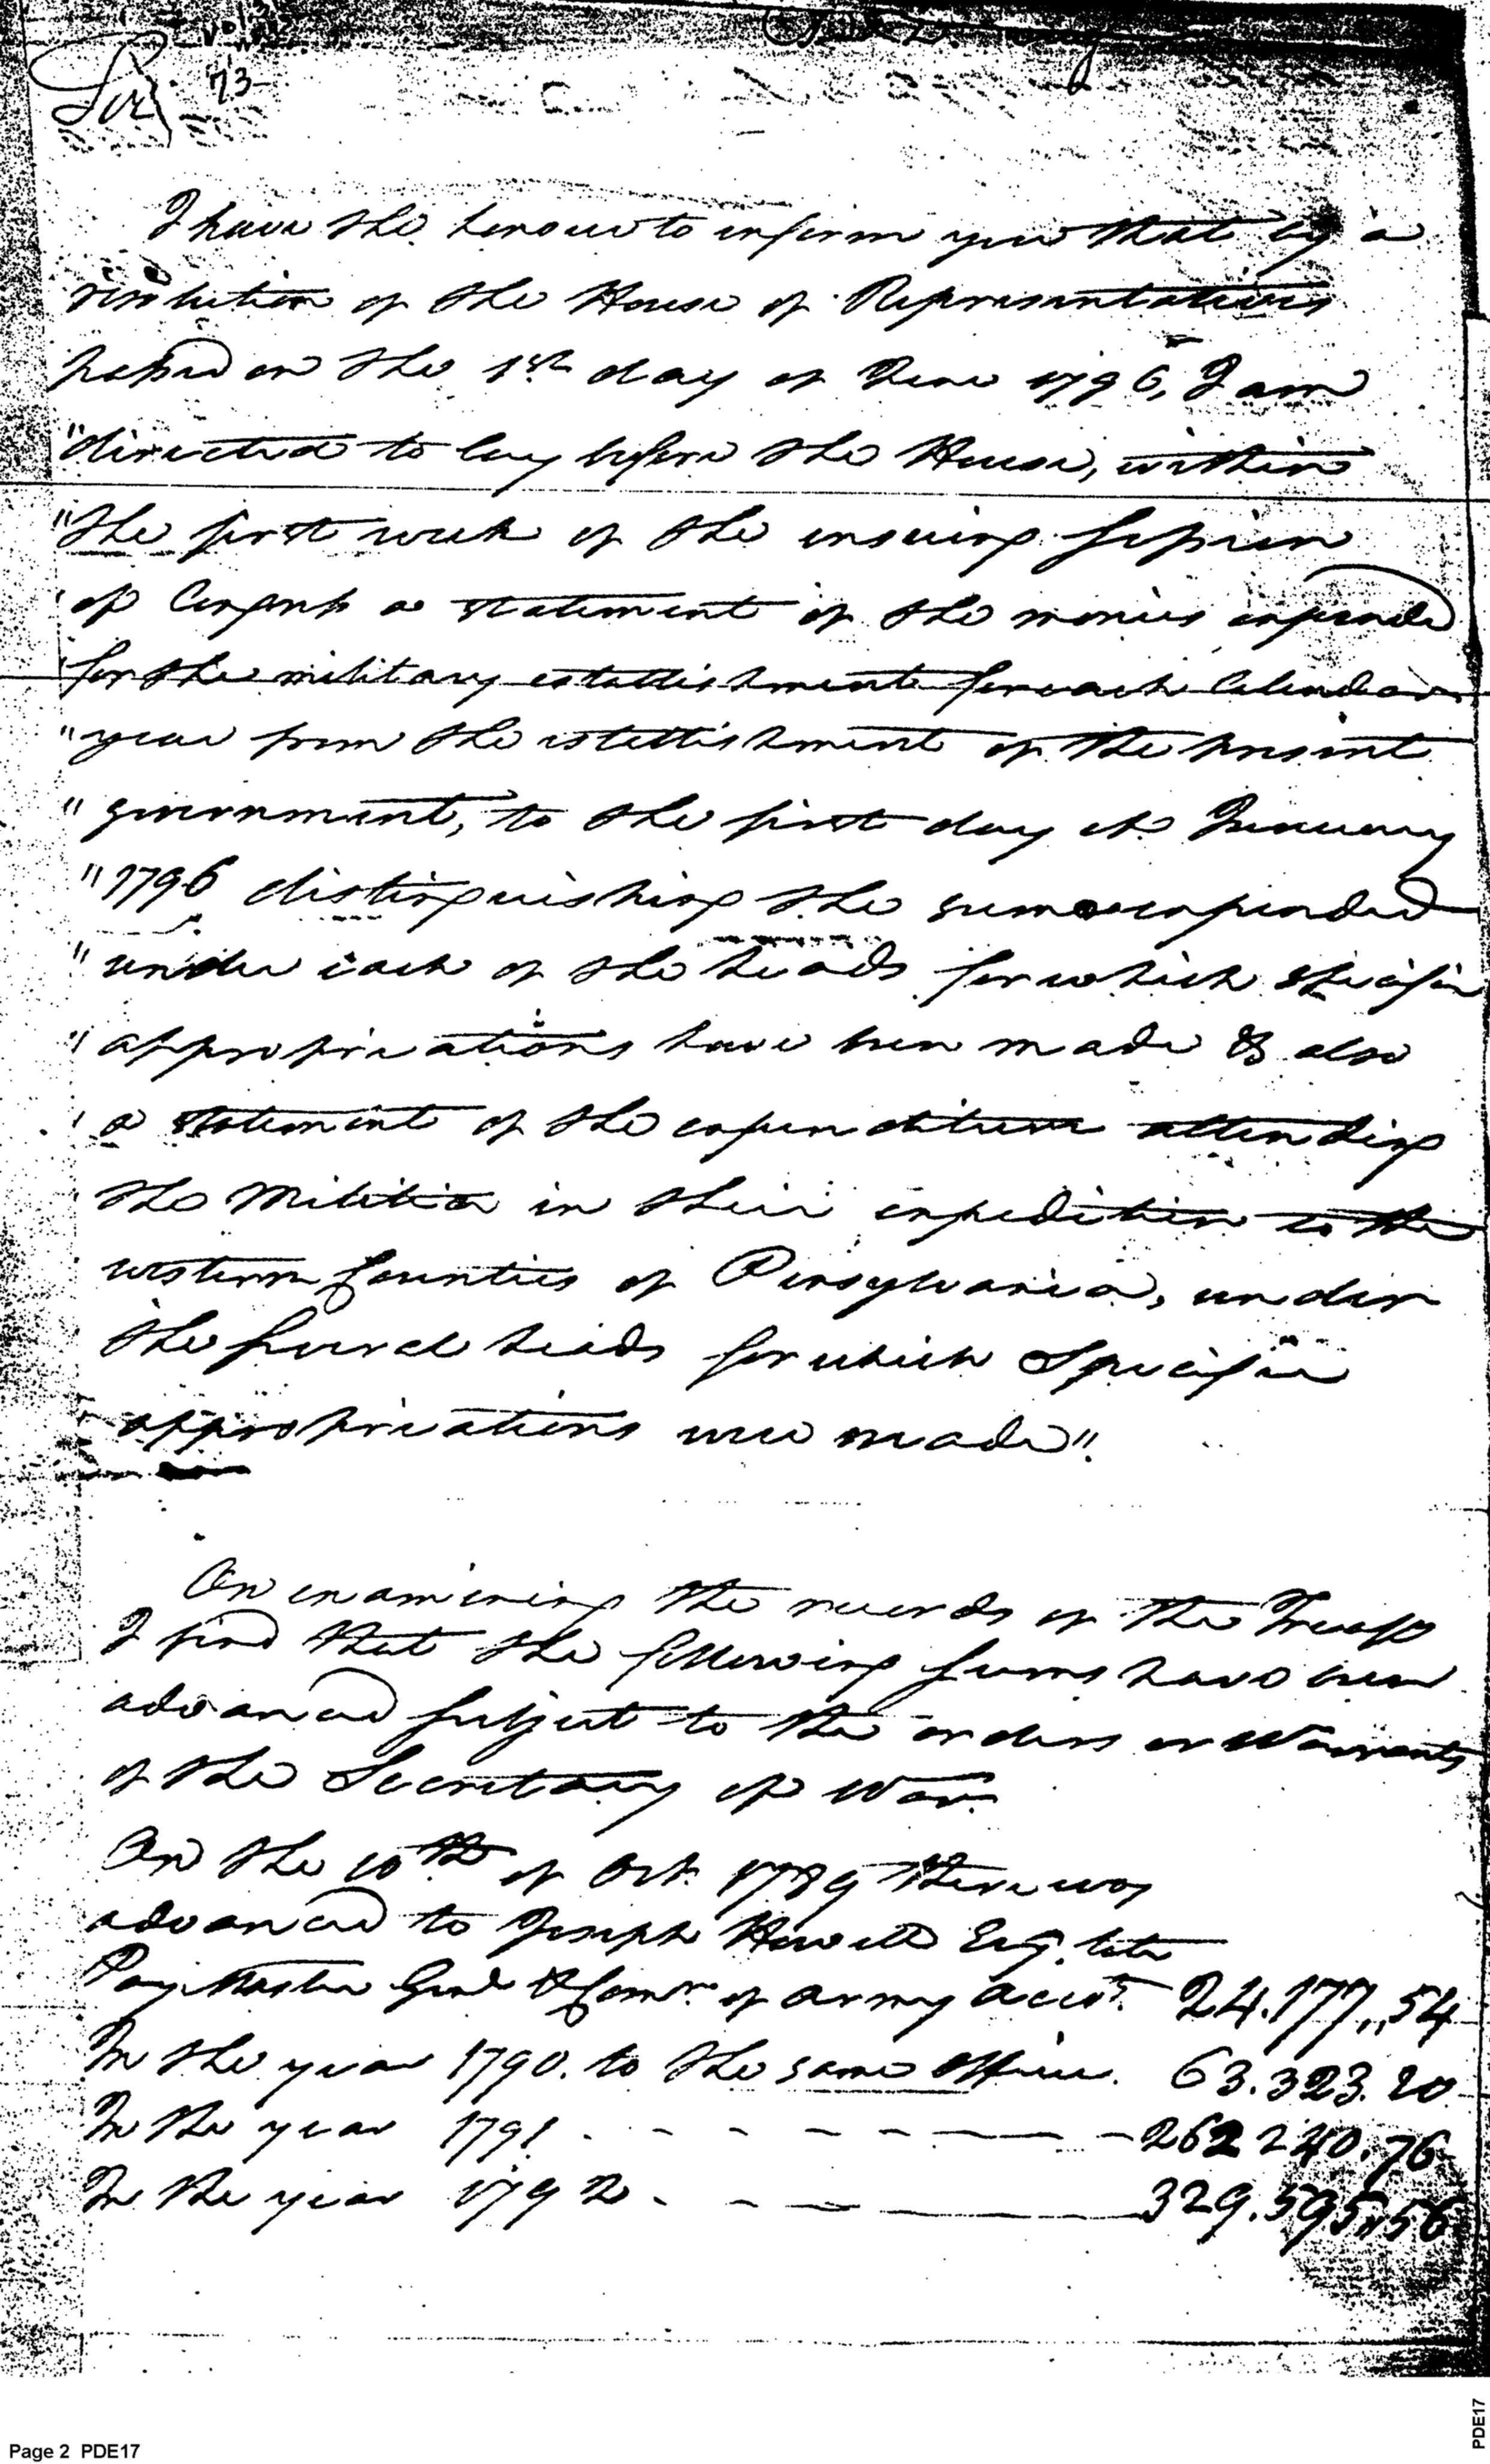 Sir
73
I have the honour to inform you that by a
resolution of the House of Representatives
passed on the 1st day of June 1796, I am
"directed to lay before the House, within
"the first week of the ensuing session
"of Congress a statement of the monies expended
"for the military establishment for each Calendar
"year from the establishment of the present
"government, to the first day of January
"1796 distinguishing the sums expended
"under each of the heads for which specific
"appropriations have been made & also
"a statement of the expenditures attending
the Militia in their expedition to the
western Counties of Pensylvania, under
the several heads for which Specific
appropriations were made".
On examining the records of the Treasy
I find that the following sums have been
advanced subject to the orders or Warrants
of the Secretary of War.
On the 10th of Oct. 1789 there was
advanced to Joseph Howell Esq. late
Pay Master Genl & Comr. of army accots. 24.177,,54
In the year 1790. to the same Officer. 63.323.20
In the year 1791 - - - - - - - 262 240.76
In the year 1792 - - - - 329.595,,56
Page 2 PDE17
PDE17